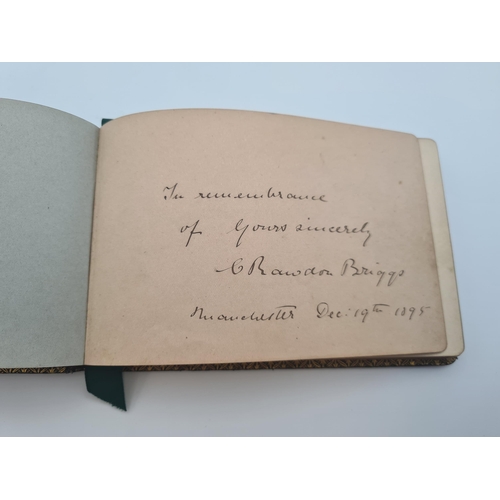 In remembrance
of Yours sincerely
C Rawdon Briggs
Manchester Dec: 19th 1895